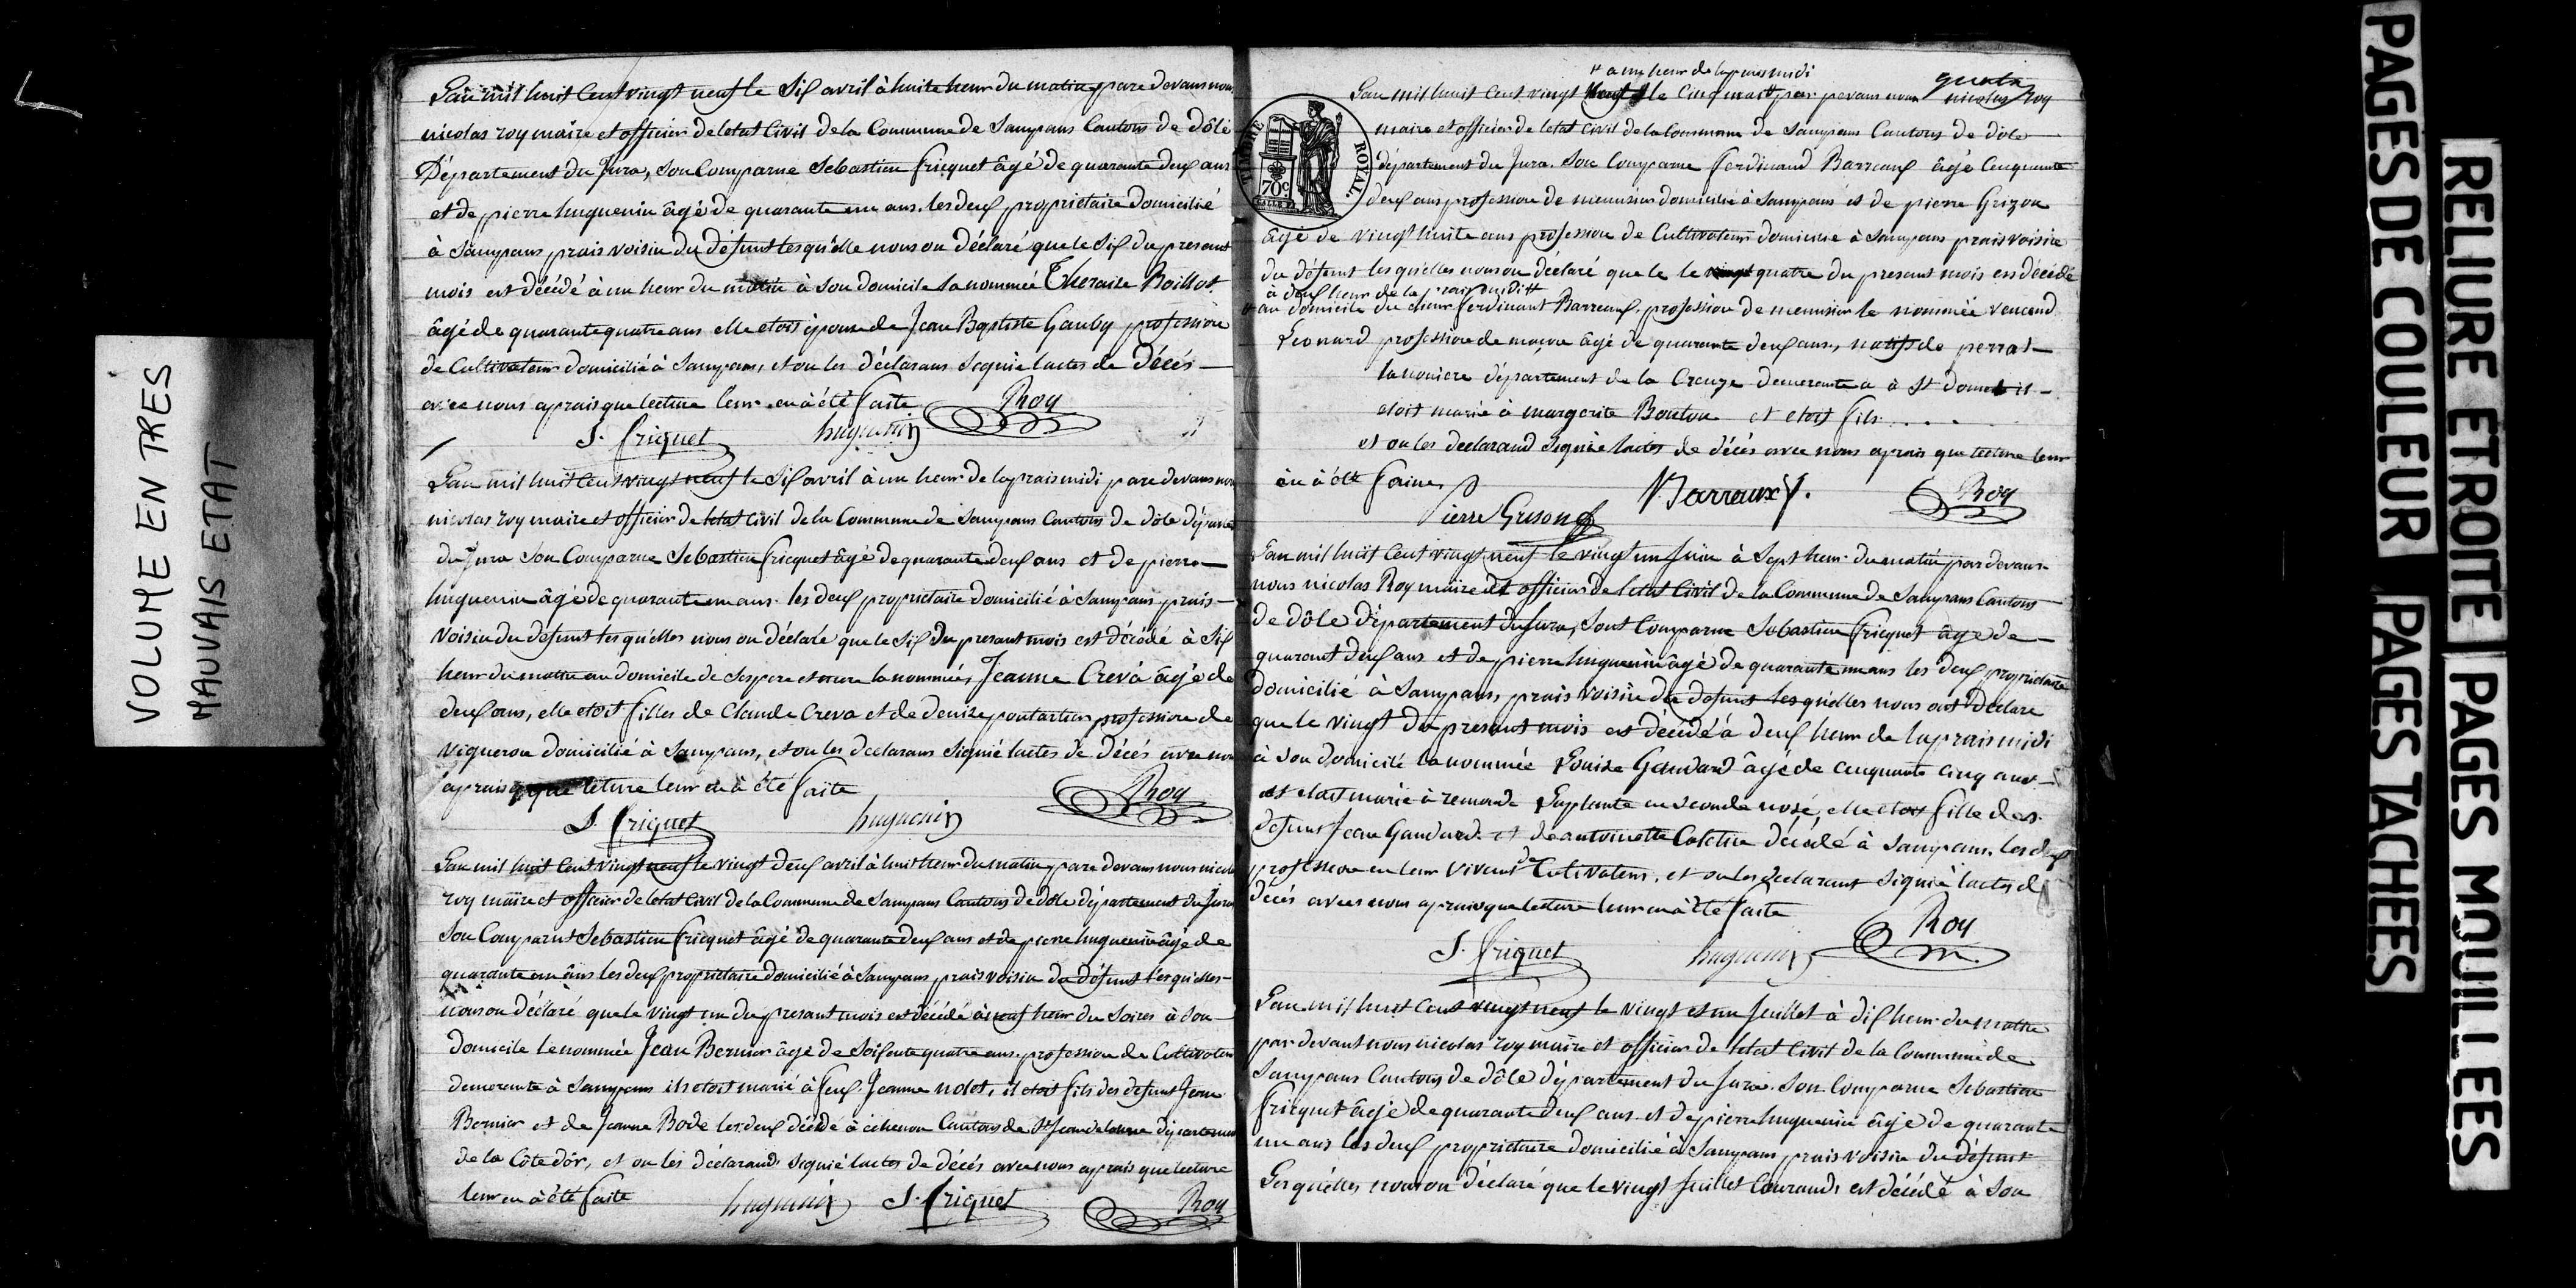 VOLUME EN TRES
MAUVAIS ETAT
Lan mil huit Cent vingt neuf le Sif avril à huite heur du matin pare devans nous
nicolas roy maire et officier de letat Civil de la Commune de Sampans Cantons de dôle
Département du Jura, son Comparue Sebastien fricquet âgé de quarante deuf ans
et de pierre huguenin âgé de quarante un ans. les deuf proprietaire domicilié
à Sampans prais voisin du défunt lesquélle nous on déclaré que le Sif du presant
mois est décédé à un heur du matin à son domicile la nommé Theraise Boillot
âgé de quarante quatre ans elle etoit épouse de Jean Baptiste Gauby profession
de Cultivateur domicilié à Sampans, et on les déclarans Signié lactes de Décés
avec nous aprais que lecture leur en à été faite Roy
S. friquet huguenin
Lan mil huit Cent vingt neuf le Sif avril à un heur de laprais midi pare devans nous
nicolas roy maire et officier de letat Civil de la Commune de Sampans Cantons de dôle départe
du Jura Son Comparue Sebastien fricquet âgé de quarante deuf ans et de pierre
huguenin âgé de quarante un ans. les deuf proprietaire domicilié à Sampans prais
voisin du defunt lesquélles nous on déclaré que le Sif du presant mois est décédé à Sif
heur du matin au domicile de Ses pere et mere la nommée, Jeanne Creva âgé de
deuf ans, elle etoit filles de Claude Creva et de Denise pontartier profession de
vigneron domicilié à Sampans, et on les declarans Signié lactes de décés avec nou
aprais que lecture leur en à été faite Roy
S. friquet huguenin
Lan mil huit Cent vingt neuf le vingt deuf avril à huit heur du matin pare devans nous nicola
roy maire et officier de letat Civil de la Commune de Sampans Cantons de dôle département du Jura
Son Comparut Sebastien fricquet âgé de quarante deuf ans et de pierre huguenin âgé de
quarante un âns les deuf proprietaire domicilié à Sampans prais voisin du défunt lesquélles
nous on déclaré que le vingt un du presant mois est décédé à neuf heur du Soires à Son
domicile le nommée Jean Bernier âgé de Soifente quatre ans. profession de Cultivateur
demerante à Sampans il etoit marié à feuf Jeanne nolot, il etoit fils des defunt Jean
Bernier et de Jeanne Bode les deuf décédé à échenon Cantons de St Jean delonne départemen
de la Côte dôr, et on les déclarand Signié lactes de décés avec nous aprais que lecture
leur en à été faite huguenin S. friquet Roy
# a un heur de laprais midi
Lan mil huit Cent vingt neuf le Cinq par devans nous nicolas Roy
maire et officier de letat Civil de la Commune de Sampans Cantons de dole
département du Jura. Son Comparue ferdinand Barreauf âgé Cinquante
deuf ans profession de menuisier domicilié à Sampans et de pierre Grizon
âgé de vingt huite ans profession de Cultivateur domicilié à Sampans prais voisin
du défunt lesquélles nous on déclaré que le le vingt quatre du presant mois est décédé
à deuf heur de la prais midi #
# au domicile du Sieur ferdinant Barreauf. profession de menuisier le nommée venand
Léonard profession de maçon âgé de quarante deuf ans, natifs de perrat
lanoniere département de la Creuze demerante a à St domet il
etoit marié à margerite Bouton et etoit fils ....
et on les declarand Signié lactes de décés avec nous aprais que lecture leur
en à été faine,
Pierre Grison Barraux f. Roy
Lan mil huit Cent vingt neuf le vingt un Juin à Sept heur du matin par devans
nous nicolas Roy maire et officier de letat Civil de la Commune de Sampans Cantons
de dôle département du Jura, Sont Comparue Sebastien fricquet âge de
quarant deuf ans et de pierre huguenin âgé de quarante un ans les deuf proprietaire
domicilié à Sampans, prais voisin du defunt lesquélles nous ont déclare
que le vingt du presant mois est décédé à deuf heur de laprais midi
à Son domicile la nommée Louise Gaudard âgé de Cinquante cinq ans
et etoit marié à remonde Laplante en seconde nosé, elle etoit fille des
defunt Jean Gaudard. et de antoinette Coletin décédé à Sampans. les deuf
profession en leur vivent de Cultivateur. et on les declarant Signié lactes d
décés avec nous aprais que lecture leur en à été faite
S. friquet huguenin Roy
Lan mil huit Cent vingt neuf le vingt et un Juillet à dif heur du matin
par devant nous nicolas roy maire et officier de letat Civil de la Commune de
Sampans Cantons de dôle département du Jura. Son Comparue Sebastien
fricquet âgé de quarante deuf ans et de pierre huguenin âge de quarante
un ans les deuf proprietaire domicilié à Sampans prais voisin du défunt
Lesquélles nous on déclaré que le vingt Juillet Courand, est décédé à Son
TIMBRE ROYAL.
70c
PAGES DE COULEUR
PAGES TACHEES
RELIURE ETROITE
PAGES MOUILLEES